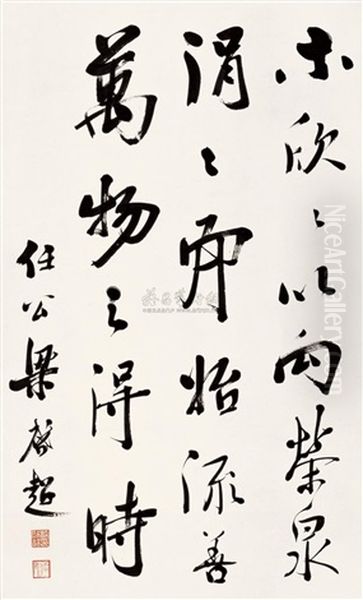 木欣〻以向榮泉
涓〻而始流善
萬物之得時
任公梁啟超
NiceArtGallery.com